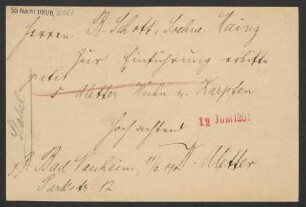 55 Nachl 100/B,
Herren B. Schott's Soehne Mainz
Zur Einführung erbitte
5 Metter Huhn u. Karpfen
Hochachtend
12 Juni 1901
Bad Nauheim, 11/6 1901 W. Metter
Parkstr. 12